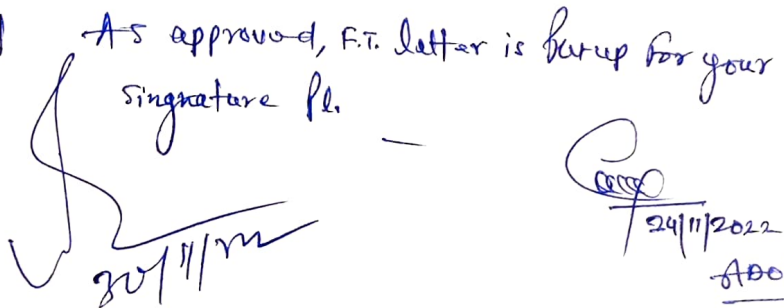 As approved, F.T. letter is putup for your
singnature Pl.
24/11/2022
ADO
30/11/22